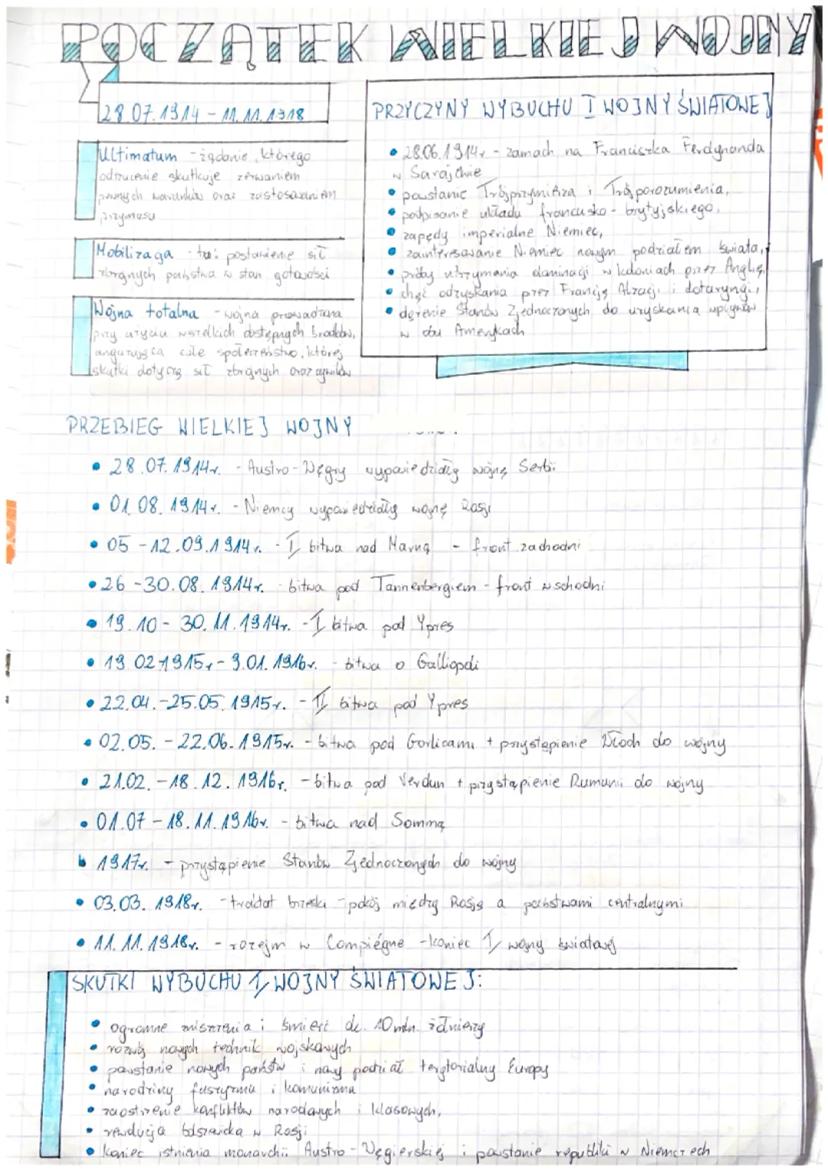 POCZĄTEK WIELKIEJ WOJNY
28.07.1914 - 11.11.1918
Ultimatum - żądanie, którego
odrzucenie skutkuje zerwaniem
pewnych warunków oraz zastosowaniem
przymusu
Mobilizacja - tu: postawienie sił
zbrojnych państwa w stan gotowości
Wojna totalna - wojna prowadzona
przy użyciu wszelkich dostępnych środków,
angażująca całe społeczeństwo, której
skutki dotyczą sił zbrojnych oraz cywilów
PRZYCZYNY WYBUCHU I WOJNY ŚWIATOWEJ
• 28.06.1914r. - zamach na Franciszka Ferdynanda
w Sarajewie
• powstanie Trójprzymierza i Trójporozumienia,
• podpisanie układu francusko-brytyjskiego,
• zapędy imperialne Niemiec,
• zainteresowanie Niemiec nowym podziałem świata,
• próby utrzymania dominacji w koloniach przez Anglię,
• chęć odzyskania przez Francję Alzacji i Lotaryngii,
• dążenie Stanów Zjednoczonych do uzyskania wpływów
w obu Amerykach
PRZEBIEG WIELKIEJ WOJNY
• 28.07.1914r. - Austro-Węgry wypowiedziały wojnę Serbii
• 01.08.1914r. - Niemcy wypowiedziały wojnę Rosji
• 05 - 12.09.1914r. - I bitwa nad Marną - front zachodni
• 26 - 30.08.1914r. - bitwa pod Tannenbergiem - front wschodni
• 19.10 - 30.11.1914r. - I bitwa pod Ypres
• 19.02.1915r. - 9.01.1916r. - bitwa o Gallipoli
• 22.04. - 25.05.1915r. - II bitwa pod Ypres
• 02.05. - 22.06.1915r. - bitwa pod Gorlicami + przystąpienie Włoch do wojny
• 21.02. - 18.12.1916r. - bitwa pod Verdun + przystąpienie Rumunii do wojny
• 01.07 - 18.11.1916r. - bitwa nad Sommą
• 1917r. - przystąpienie Stanów Zjednoczonych do wojny
• 03.03.1918r. - traktat brzeski - pokój między Rosją a państwami centralnymi
• 11.11.1918r. - rozejm w Compiégne - koniec I wojny światowej
SKUTKI WYBUCHU I WOJNY ŚWIATOWEJ:
• ogromne zniszczenia i śmierć ok. 10 mln. żołnierzy
• rozwój nowych technik wojskowych
• powstanie nowych państw i nowy podział terytorialny Europy
• narodziny faszyzmu i komunizmu
• zaostrzenie konfliktów narodowych i klasowych,
• rewolucja bolszewicka w Rosji
• koniec istnienia monarchii Austro-Węgierskiej i powstanie republiki w Niemczech